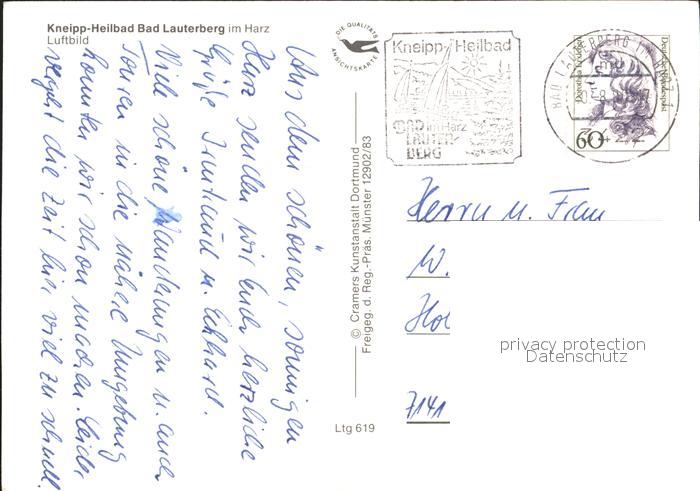 Kneipp-Heilbad Bad Lauterberg im Harz
Luftbild
Aus dem schönen, sonnigen
Harz senden wir Euch herzliche
Grüße Irmtraud u. Eckhard.
Viele schöne Wanderungen u. auch
Touren in die nähere Umgebung
konnten wir schon machen. Leider
vergeht die Zeit hier viel zu schnell.
DIE QUALITÄTS
ANSICHTSKARTE
© Cramers Kunstanstalt Dortmund
Freigeg. d. Reg.-Präs. Münster 12902/83
Ltg 619
Kneipp-Heilbad
BAD im Harz
LAUTER-
BERG
BAD LAUTERBERG IM HARZ 1
Dorothea Erxleben
Deutsche Bundespost
60
Herrn u. Frau
W.
7141
privacy protection
Datenschutz